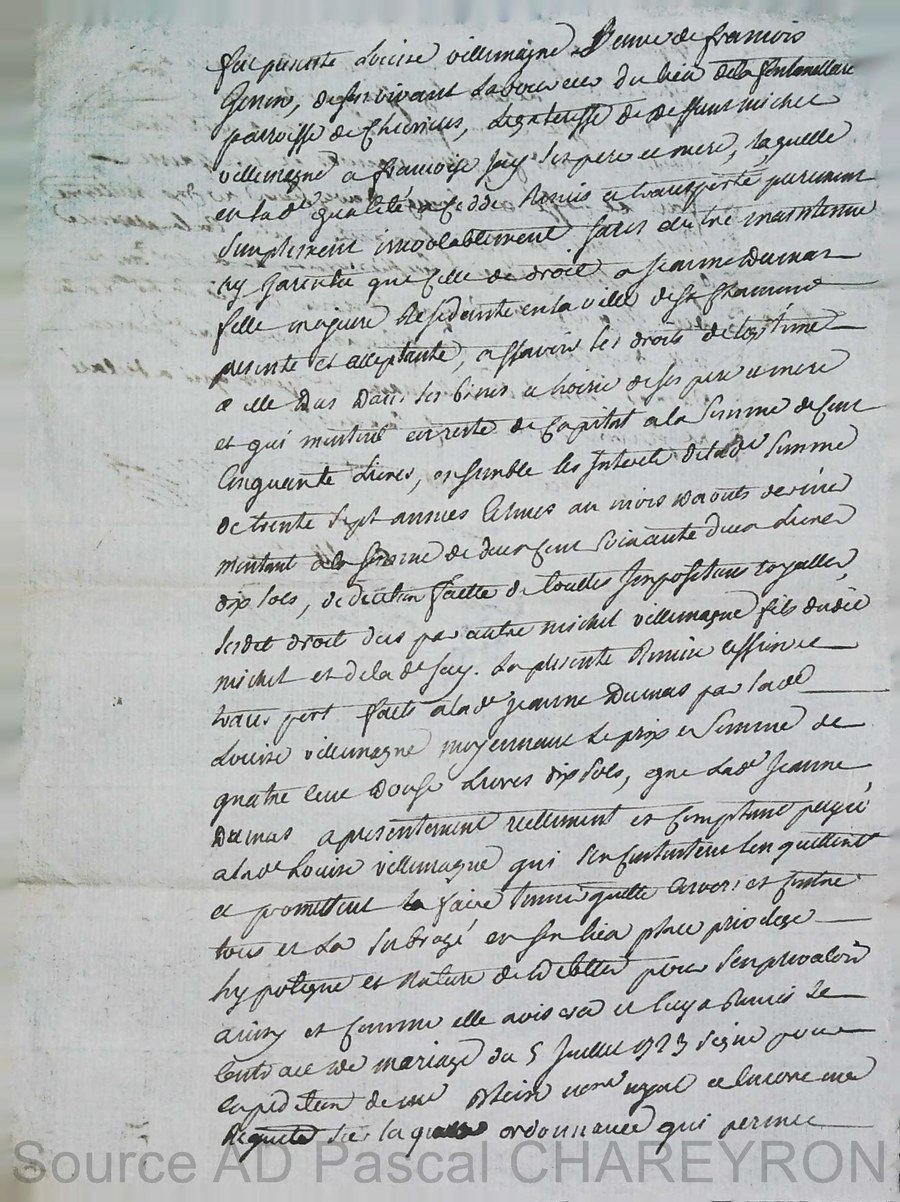 fut presente Louise villemagne Veuve de francois
de son vivant Laboureur du lieu de la fontenellare
parroisse de Legateresse de deffunt michel
villemagne & francoise fay ses pere et mere, laquelle
en lad^e qualité a ceddé Remis et transporté purement
simplement sans autre maintenue
ny garentie que celle de droit a jeanne Dumas
fille majeure Residante en la ville de S^t Chamond
presente et acceptante, assavoir les droits de legitime
a elle Dus Dans les biens et hoirie de ses pere et mere
et qui montent en reste de capital a la somme de cent
Cinquante Livres, ensemble les Interets de lad^e somme
de trente sept années echues au mois d'aoust dernier
montant a la somme de deux cent soixante deux Livres
dix sols, deduction faitte de touttes Impositions royalles,
lesdit droit dus par autre michel villemagne fils dudit
michel et de lad^e fay. La presente Remise cession et
transport faits a lad^e jeanne Dumas par lad^e
Louise villemagne moyennant Le prix et Somme de
quatre cent Douze Livres dix sols, que Lad^e Jeanne
Dumas a presentement reellement et Comptant payé
a lad^e Louise villemagne qui s'en contente l'en quitte
et promettent la faire tenir quitte envers et contre
tous et La subrogé en son lieu place privilege
hypoteque et Nature de debtte pour s'en prevaloir
ainsy et comme elle avisera et luy a Remis Le
contract de mariage du 5 Juillet 1723 signé pour
expedition de me no^re royal et encore une
Requete sur laquelle ordonnance qui permet
Source AD Pascal CHAREYRON